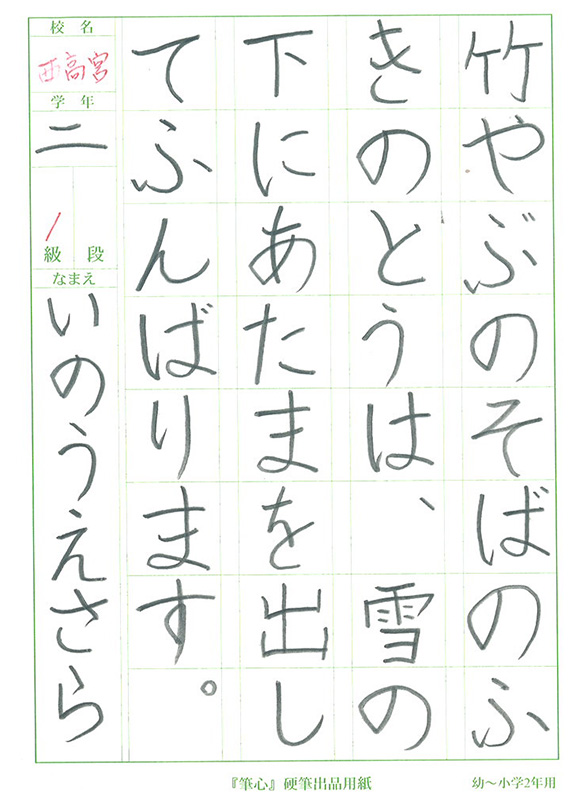 竹やぶのそばのふ
きのとうは、雪の
下にあたまを出し
てふんばります。
校名
西高宮
学年
二
級段
1
なまえ
いのうえさら
『筆心』硬筆出品用紙
幼〜小学2年用